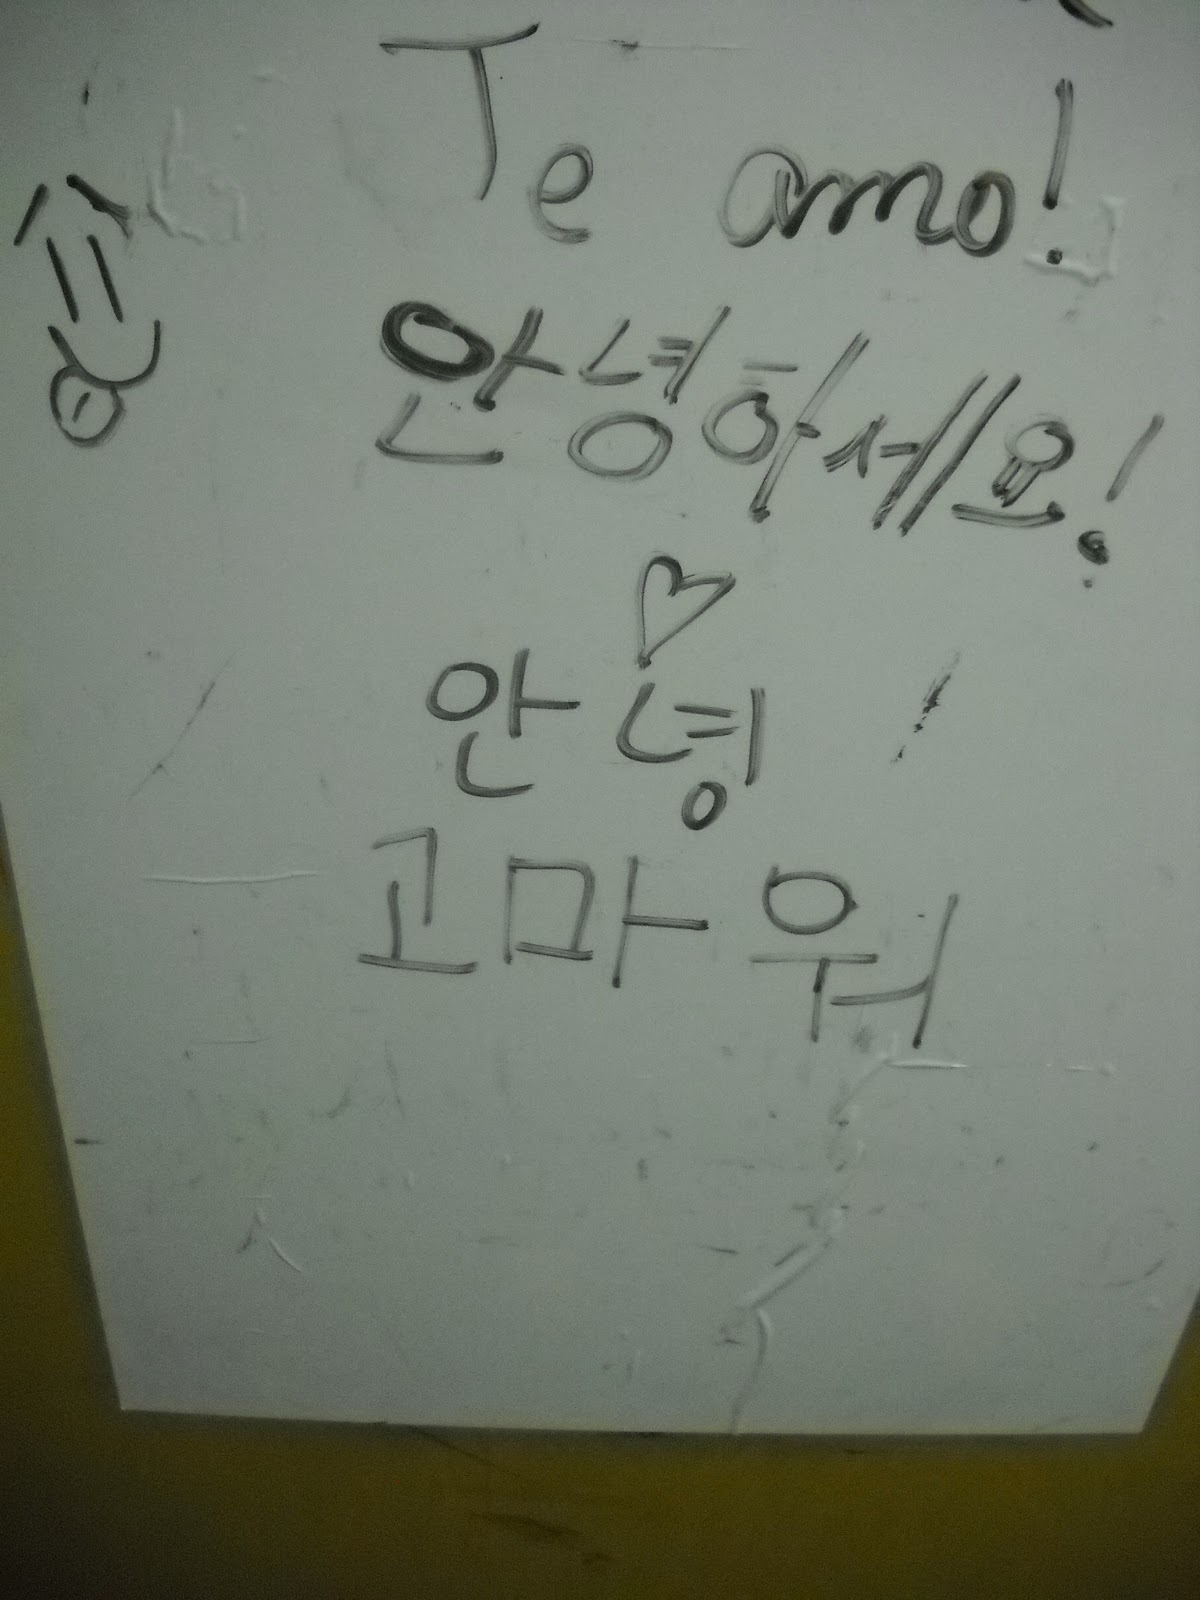 Te amo!
안녕하세요!
안녕
고마워